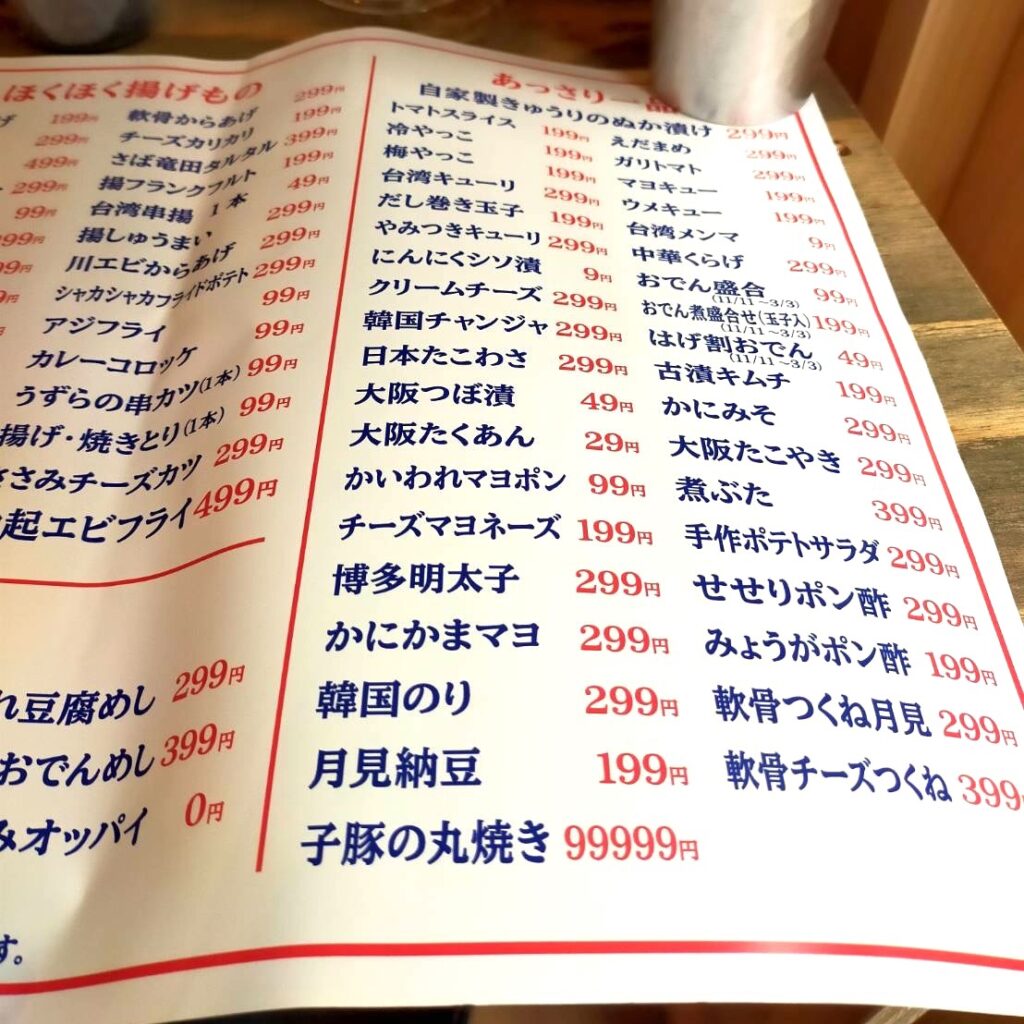 ほくほく揚げもの
げ 199円
299円
499円
299円
99円
軟骨からあげ 299円
チーズカリカリ 199円
さば竜田タルタル 399円
揚フランクフルト 199円
台湾串揚 1本 49円
揚しゅうまい 299円
川エビからあげ 299円
シャカシャカフライドポテト 299円
アジフライ 99円
カレーコロッケ 99円
うずらの串カツ(1本) 99円
揚げ・焼きとり(1本) 99円
ささみチーズカツ 299円
起エビフライ 499円
れ豆腐めし 299円
おでんめし 399円
みオッパイ 0円
す。
あっさり一品
自家製きゅうりのぬか漬け 299円
トマトスライス 199円
冷やっこ 199円
梅やっこ 199円
台湾キューリ 299円
だし巻き玉子 199円
やみつきキューリ 299円
にんにくシソ漬 9円
クリームチーズ 299円
韓国チャンジャ 299円
日本たこわさ 299円
大阪つぼ漬 49円
大阪たくあん 29円
かいわれマヨポン 99円
チーズマヨネーズ 199円
博多明太子 299円
かにかまマヨ 299円
韓国のり 299円
月見納豆 199円
子豚の丸焼き 99999円
えだまめ 299円
ガリトマト 299円
マヨキュー 199円
ウメキュー 199円
台湾メンマ 9円
中華くらげ 299円
おでん盛合 99円
(11/11〜3/3)
おでん煮盛合せ(玉子入) 199円
(11/11〜3/3)
はげ割おでん 49円
(11/11〜3/3)
古漬キムチ 199円
かにみそ 299円
大阪たこやき 299円
煮ぶた 399円
手作ポテトサラダ 299円
せせりポン酢 299円
みょうがポン酢 199円
軟骨つくね月見 299円
軟骨チーズつくね 399円